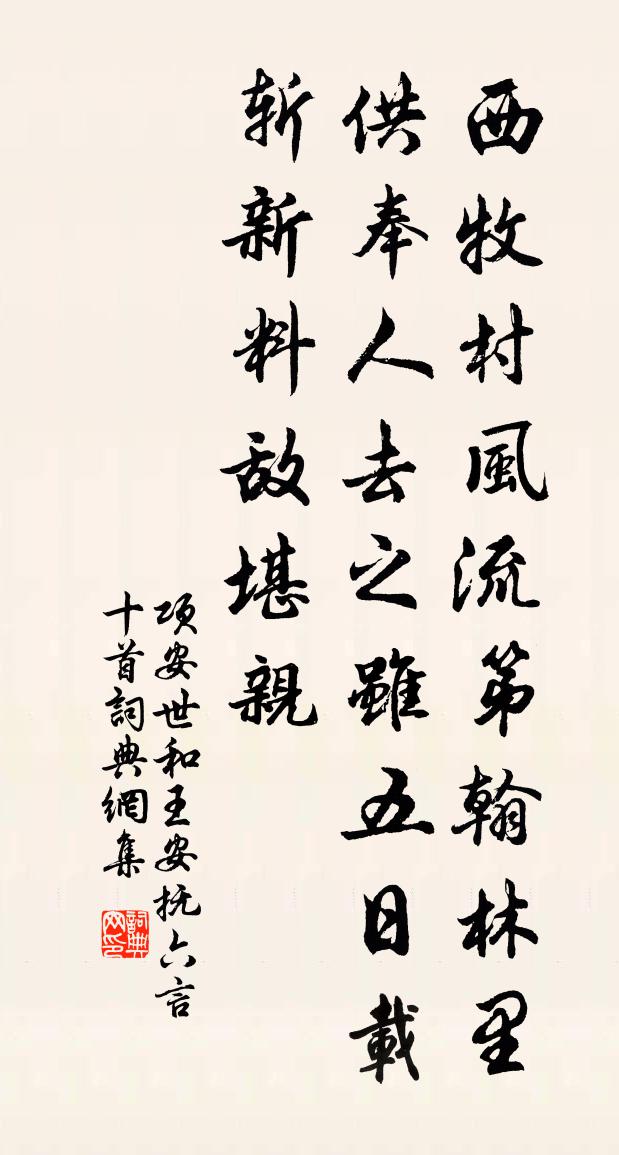 西牧村風流第翰林里
供奉人去之雖五日載
斬新料敵堪親
項安世和王安撫六言
十首詞典網集
詞典网印